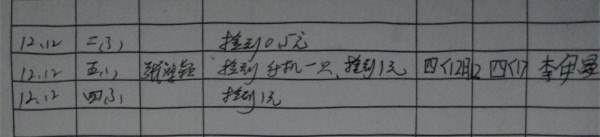 12.12 二(3) 捡到0.5元
12.12 五(1) 捡到手机一只、捡到1元 四(1) 四(1) 李伊
12.12 四(3) 捡到1元